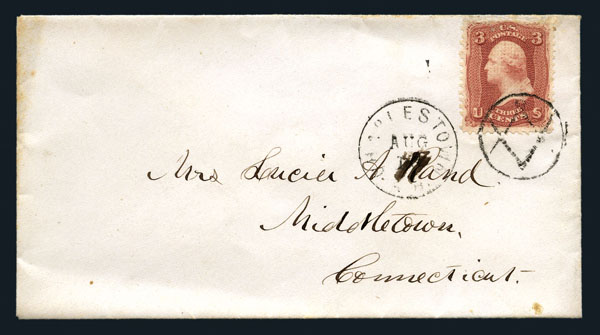 U.S. POSTAGE
3 3
U THREE CENTS S
CHARLESTOWN
AUG
N. H.
Mrs Lucien A. Hand
Middletown,
Connecticut.